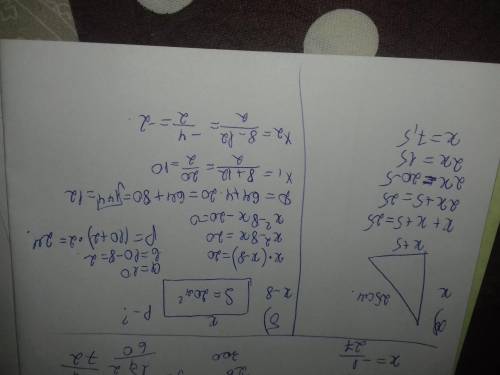 x = -1/27
а)
25 см.
x
x+5
x+x+5=25
2x+5=25
2x=20-5
2x=15
x=7,5
б)
P-?
x
S=20см²
x-8
x·(x-8)=20
x²-8x=20
x²-8x-20=0
D=64+4·20=64+80=√144=12
x₁=8+12/2=20/2=10
x₂=8-12/2=-4/2=-2.
a=10
b=10-8=2
P=(10+2)·2=24.